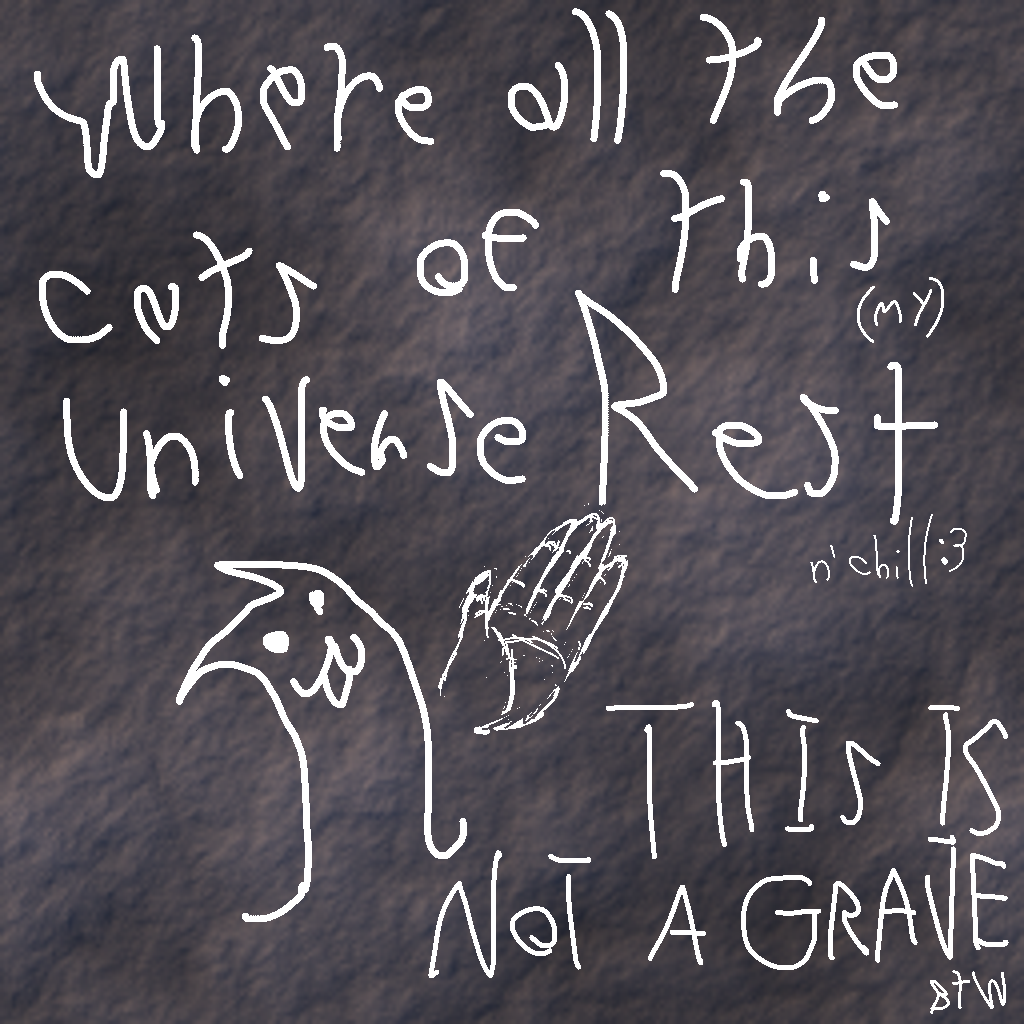 Where all the
cats of this
(my)
Universe Rest
n' chill :3
THIS IS
NOT A GRAVE
BTW